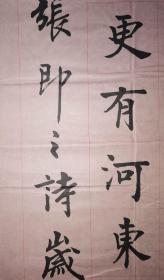 更有河東
張即之詩歲